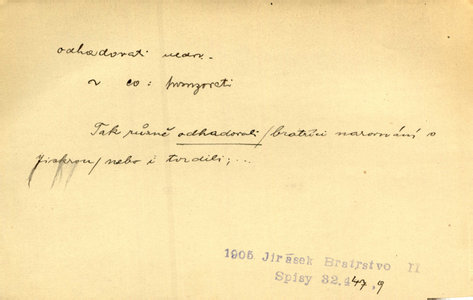 odhadovati nedok.
~ co: 
Tak různě odhadovali /bratříci narovnání s
Jiskrou/ nebo i tvrdili;...
1905 Jirásek Bratrstvo II
Spisy 32.447,9